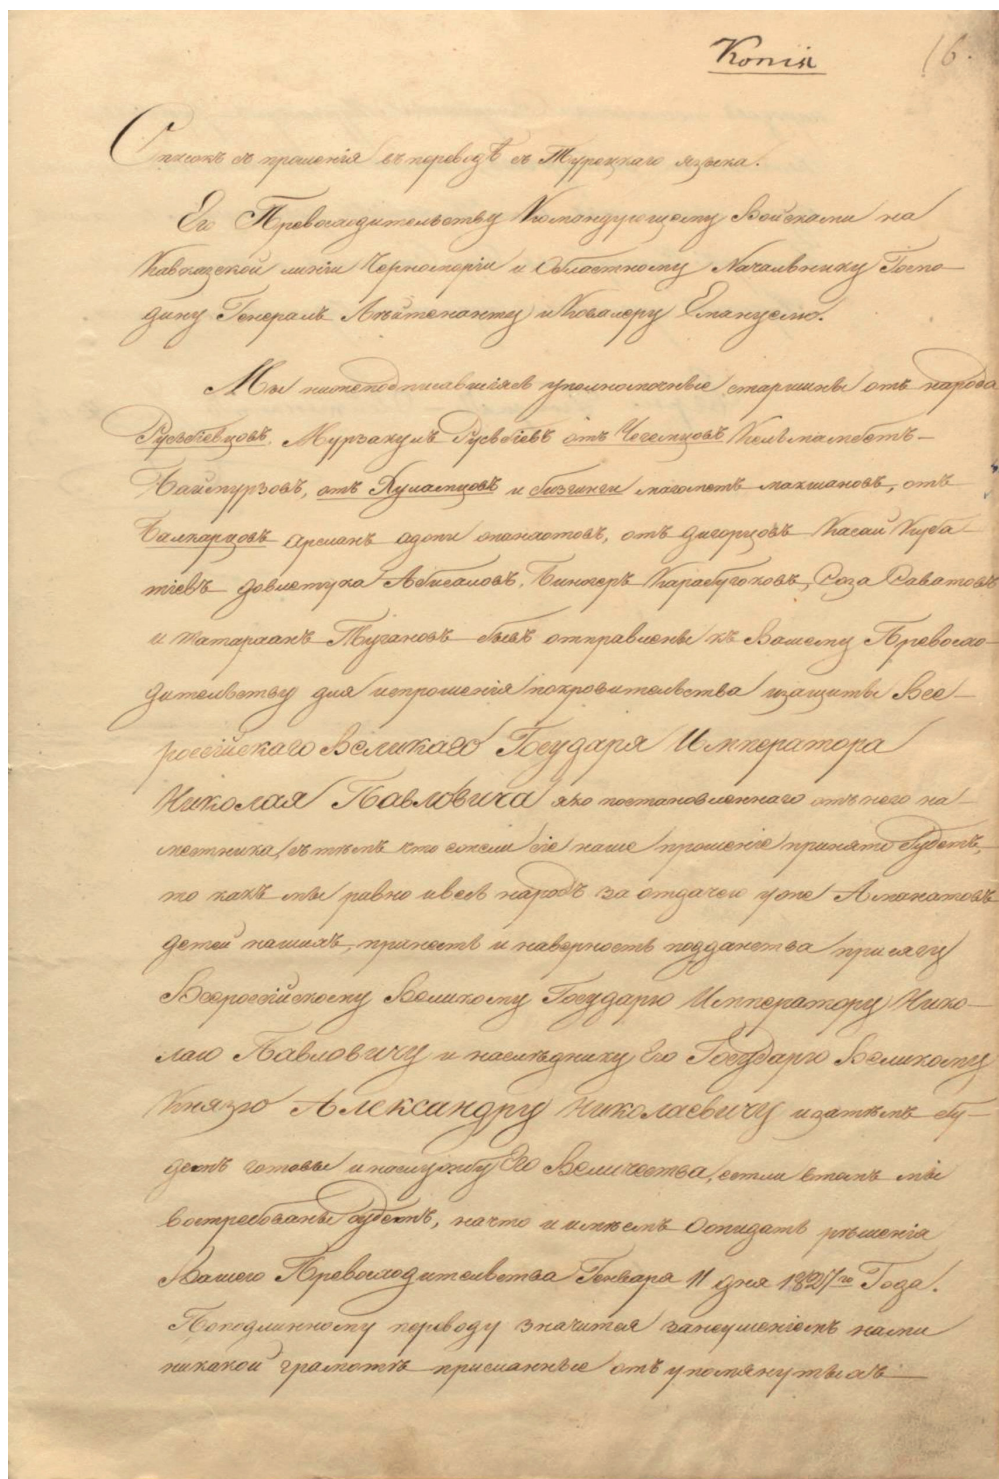 Копія 16.
Списокъ съ прошенія въ переводѣ съ Турецкаго языка.
Его Превосходительству Командующему Войсками на
Кавказской линіи Черноморіи и Областному Начальнику Госпо-
дину Генералъ Лейтенанту и Кавалеру Емануелю.
Мы нижеподписавшіяся уполномочные старшины отъ народа
Русбіевцовъ, Мурзакулъ Русбіевъ отъ Чегемцовъ Кельмамбетъ-
Баймурзовъ, отъ Хуламцовъ и Бизинги магометъ макшановъ, отъ
Балкарцовъ арсланъ адожи анахотовъ, отъ дигорцовъ Касай Куба-
тіевъ довлетука Абисаловъ, Бингеръ Карабугоковъ, Соза Саватовъ
и татарханъ Тугановъ бывъ отправлены къ Вашему Превосхо-
дительству для испрошенія покровительства изащиты Все-
россійскаго Великаго Государя Императора
Николая Павловича яко постановленнаго отънего на-
местника, сътѣмъ что если сіе наше прошеніе принято будетъ,
то какъ мы равно ивесь народъ за отдачею уже Аманатовъ
детей нашихъ, принесть и наверность подданства присягу
Всероссійскому Великому Государю Императору Нико-
лаю Павловичу и наслѣднику Его Государю Великому
Князю Александру Николаевичу изатѣмъ бу-
демъ готовы и наслужбу Его Величества, естли втомъ мы
востребованы будемъ, начто и имѣемъ Ожидать рѣшенія
Вашего Превосходительства Генваря 11 дня 1827го Года.
Поподлинному переводу значится занеумѣніемъ нами
никакой грамотѣ присланные отъ упомянутыхъ